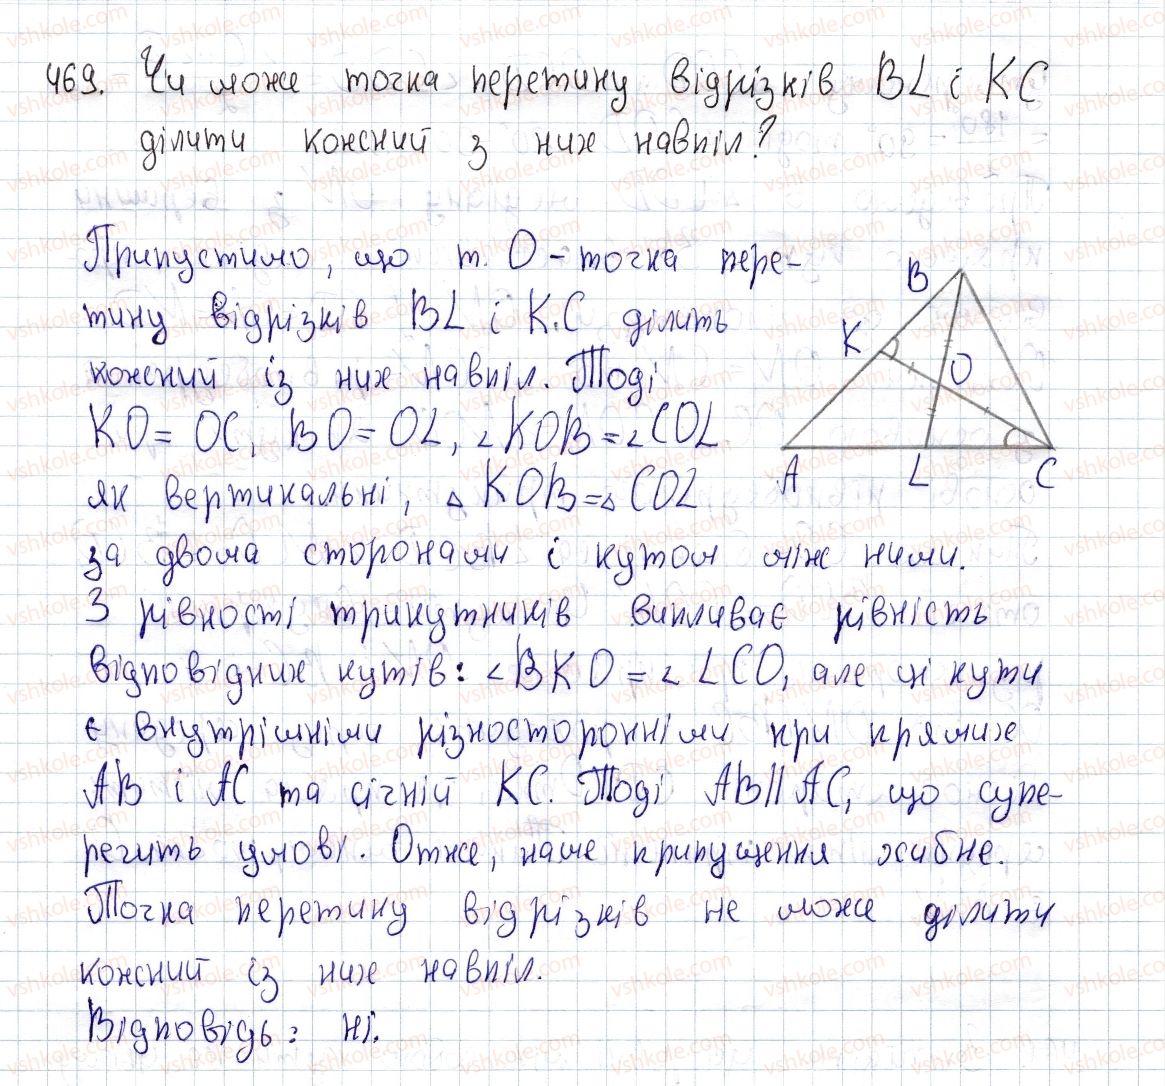 469. Чи може точка перетину відрізків BL і KC
ділити кожний з них навпіл?
Припустимо, що т. O – точка пере-
тину відрізків BL і K.C ділить
кожний із них навпіл. Тоді
KO = OC, BO = OL, ∠KOB = ∠COL
як вертикальні, △KOB = △COL
за двома сторонами і кутом між ними.
З рівності трикутників випливає рівність
відповідних кутів: ∠BKO = ∠LCO, але ці кути
є внутрішніми різносторонніми при прямих
AB і AC та січній KC. Тоді AB || AC, що супе-
речить умові. Отже, наше припущення хибне.
Точка перетину відрізків не може ділити
кожний із них навпіл.
Відповідь: ні.
B
K
O
A
L
C